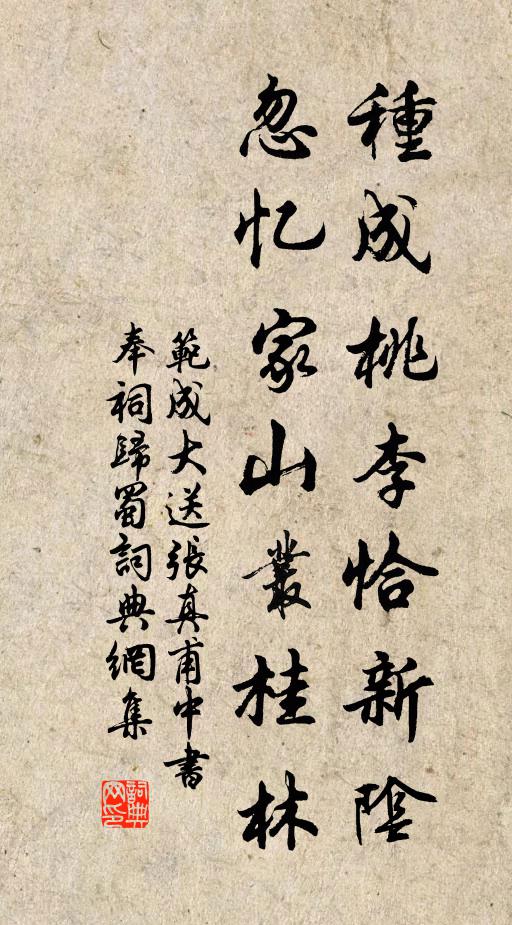 種成桃李恰新陰
忽忆家山叢桂林
範成大送張真甫中書
奉祠歸蜀詞典網集
詞典
网印